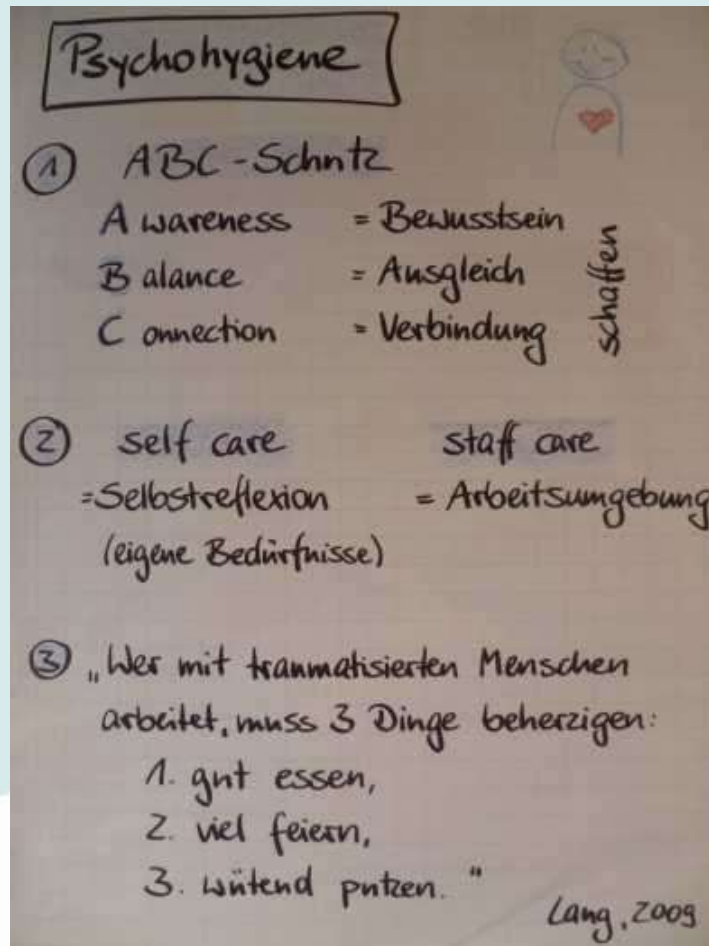 Psychohygiene
① ABC-Schutz
Awareness = Bewusstsein
Balance = Ausgleich
Connection = Verbindung
schaffen
② self care staff care
=Selbstreflexion = Arbeitsumgebung
(eigene Bedürfnisse)
③ „Wer mit traumatisierten Menschen
arbeitet, muss 3 Dinge beherzigen:
1. gut essen,
2. viel feiern,
3. wütend putzen."
Lang, 2009